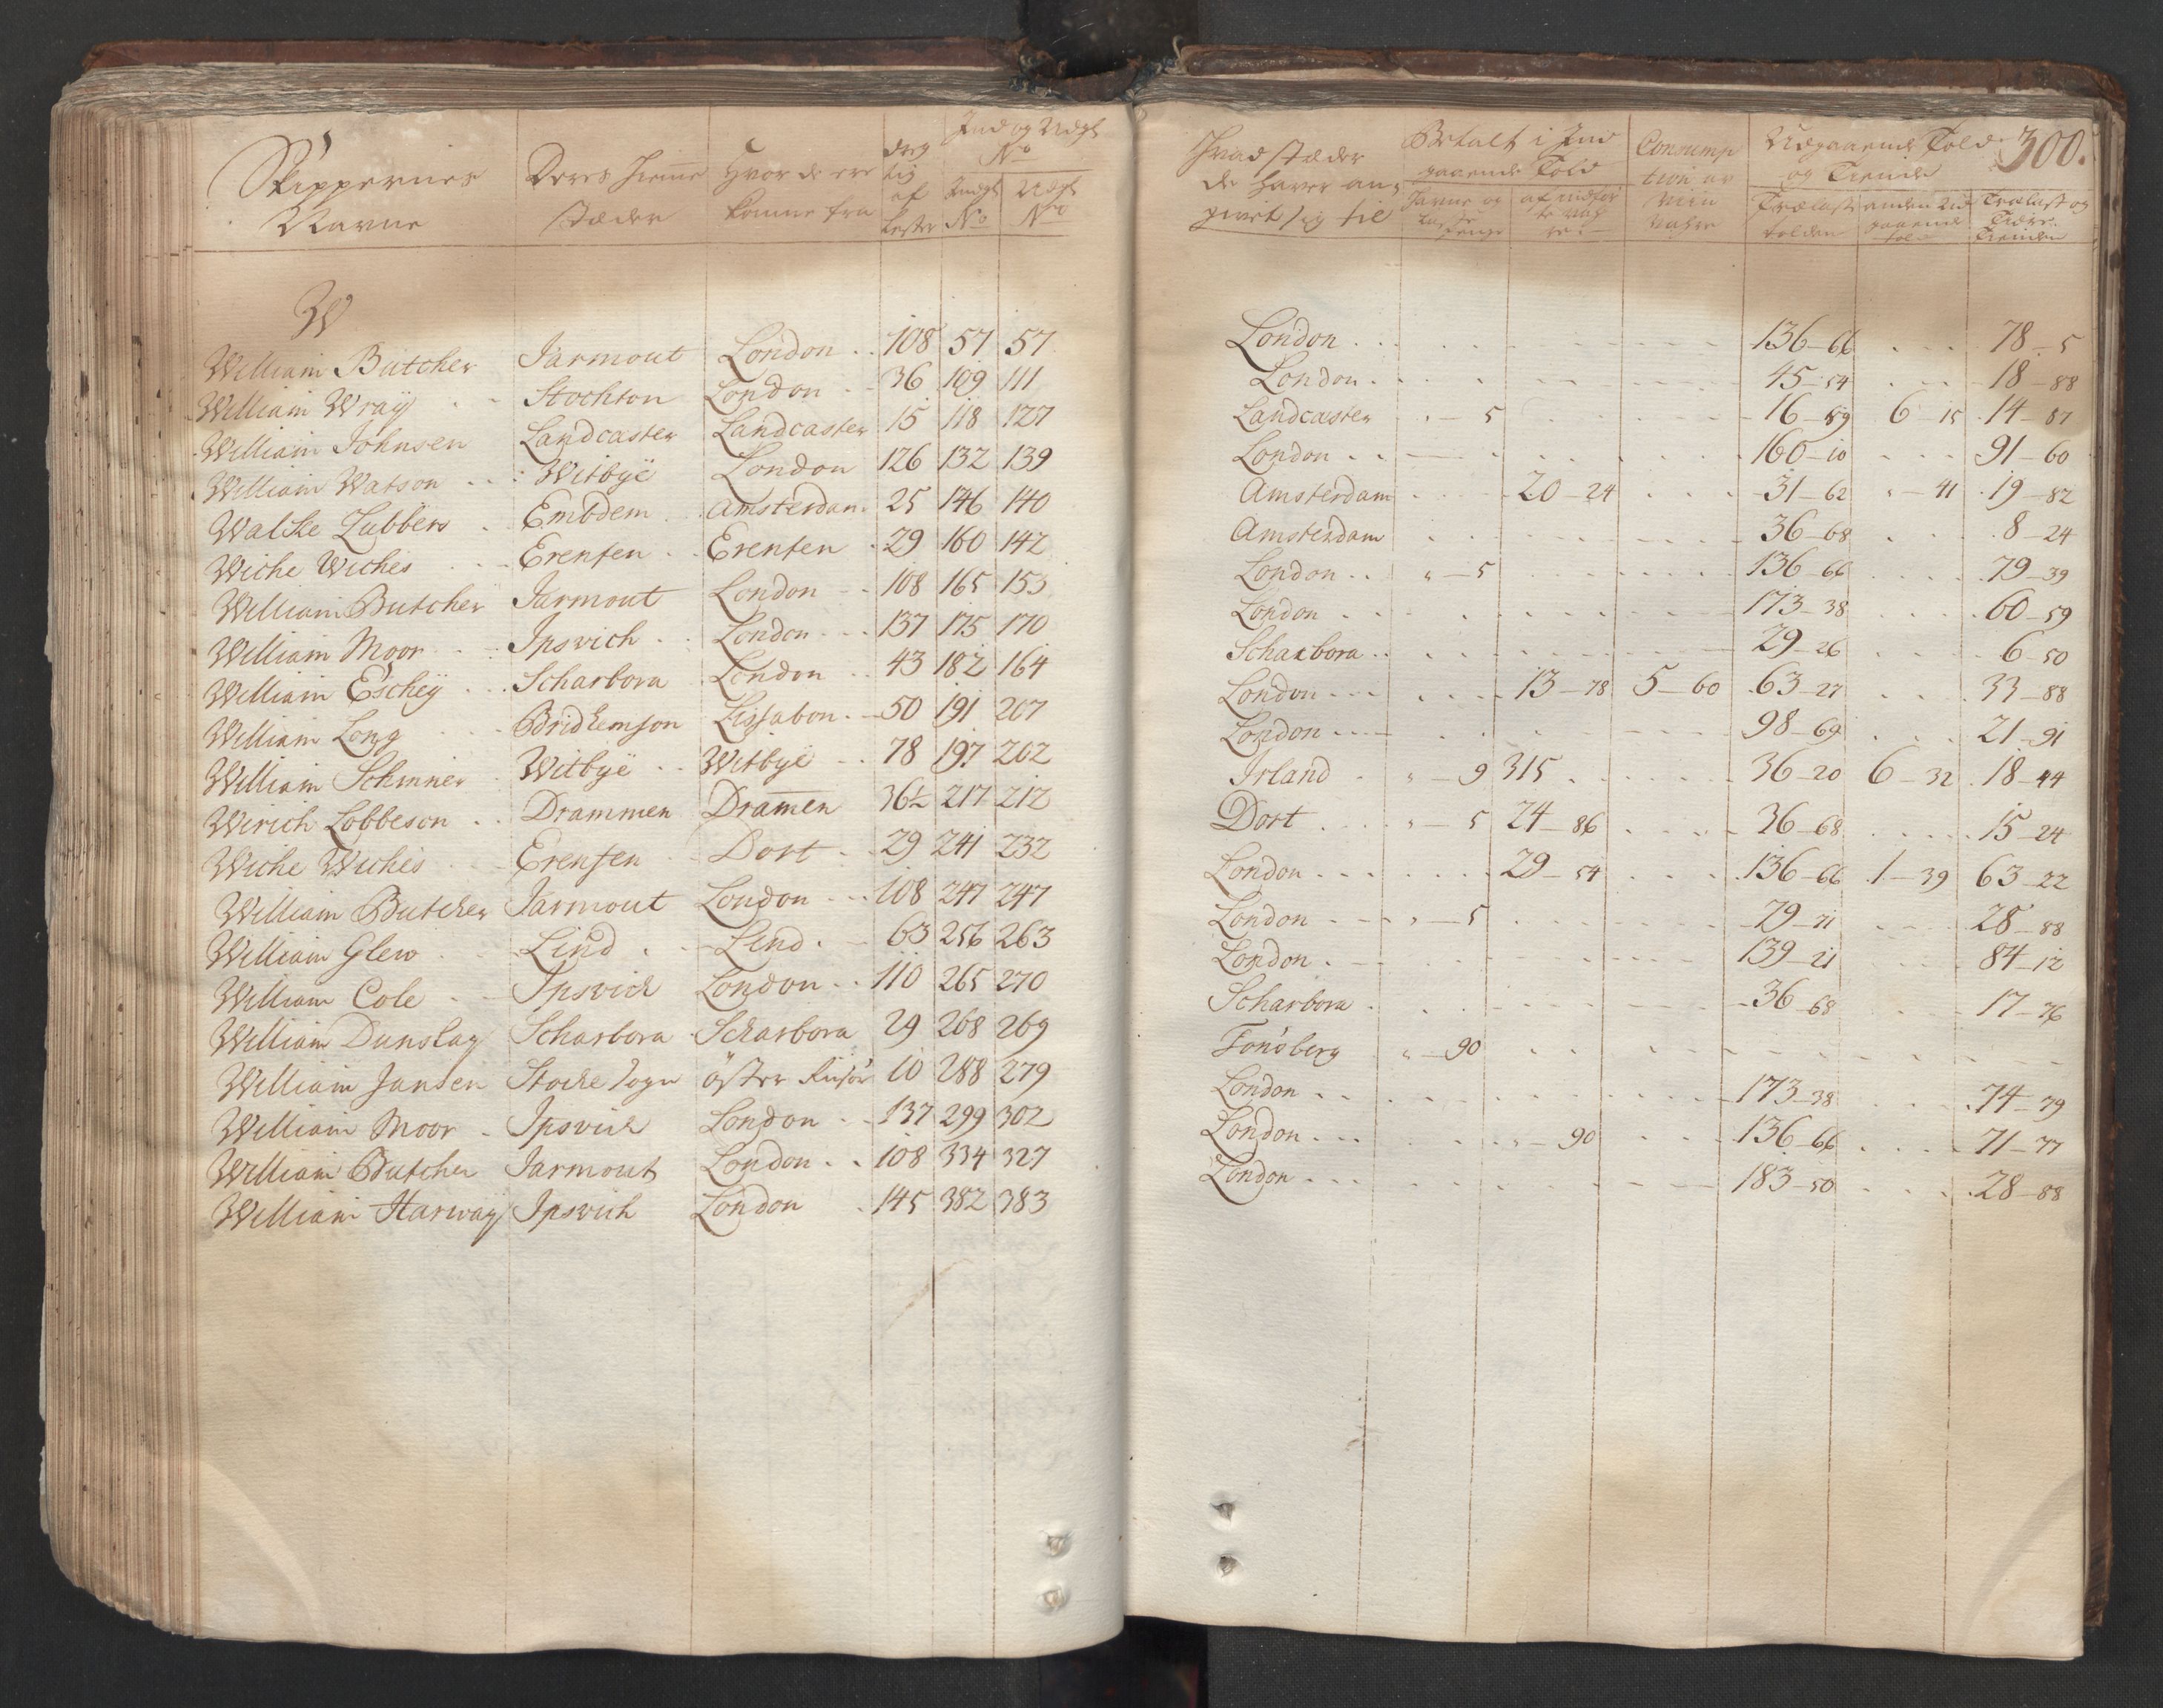 Skippernes Navne | Deres Hiemme stæder | Hvor de ere komne fra | dreg tig af Lester | Ind og Udgt No | Indgt No | Udgt No
W
William Butcher | Jarmout | London | 108 | 57 | 57
William Wraÿ | Stockton | London | 36 | 109 | 111
William Johnsen | Landcaster | Landcaster | 15 | 118 | 127
William Watson | Witbÿe | London | 126 | 132 | 139
Walcke Lubbers | Embdem | Amsterdam | 25 | 146 | 140
Wiche Wiches | Erensen | Erensen | 29 | 160 | 142
William Butcher | Jarmout | London | 108 | 165 | 153
William Moor | Ipsvich | London | 137 | 175 | 170
William Escheÿ | Scharbora | London | 43 | 182 | 164
William Long | Bridlemson | Lissabon | 50 | 191 | 207
William Schinner | Witbÿe | Witbÿe | 78 | 197 | 202
Wirich Lobbeson | Drammen | Dramen | 36½ | 217 | 212
Wiche Wiches | Erensen | Dort | 29 | 241 | 232
William Butcher | Jarmout | London | 108 | 247 | 247
William Glew | Lind | Lend | 63 | 256 | 263
William Cole | Ipsvich | London | 110 | 265 | 270
William Dunslay | Scharbora | Scharbora | 29 | 268 | 269
William Jansen | Stocke Sogn | öster Riisöer | 10 | 288 | 279
William Moor | Ipsvich | London | 137 | 299 | 302
William Butcher | Jarmout | London | 108 | 334 | 327
William Harway | Ipsvich | London | 145 | 382 | 383
300.
Hvad stæder de haver an givet sig til | Betalt i Ind gaaende Told | Consump tion af Viin Vahre | Udgaaende Told og Tiende
Havne og Laste Penge | af indför te Vah re | Trælast tolden | anden Ud gaaende tol | Trælast og Tiære Tienden
London | 136-66 | 78-5
London | 45-54 | 18-88
Landcaster | -5 | 16-59 | 6-15 | 14-87
London | 160-10 | 91-60
Amsterdam | 20-24 | 31-62 | -41 | 19-82
Amsterdam | 36-68 | 8-24
London | -5 | 136-66 | 79-39
London | 173-38 | 60-59
Scharbora | 29-26 | 6-50
London | 13-78 | 5-60 | 63-27 | 33-88
London | 98-69 | 21-91
Irland | -9 | 315 | 36-20 | 6-32 | 18-44
Dort | -5 | 24-86 | 36-68 | 15-24
London | 29-54 | 136-66 | 1-39 | 63-22
London | -5 | 79-71 | 28-88
London | 139-21 | 84-12
Scharbora | 36-68 | 17-76
Tonsberg | -90
London | 173-38 | 74-79
London | -90 | 136-66 | 71-77
London | 183-50 | 28-88